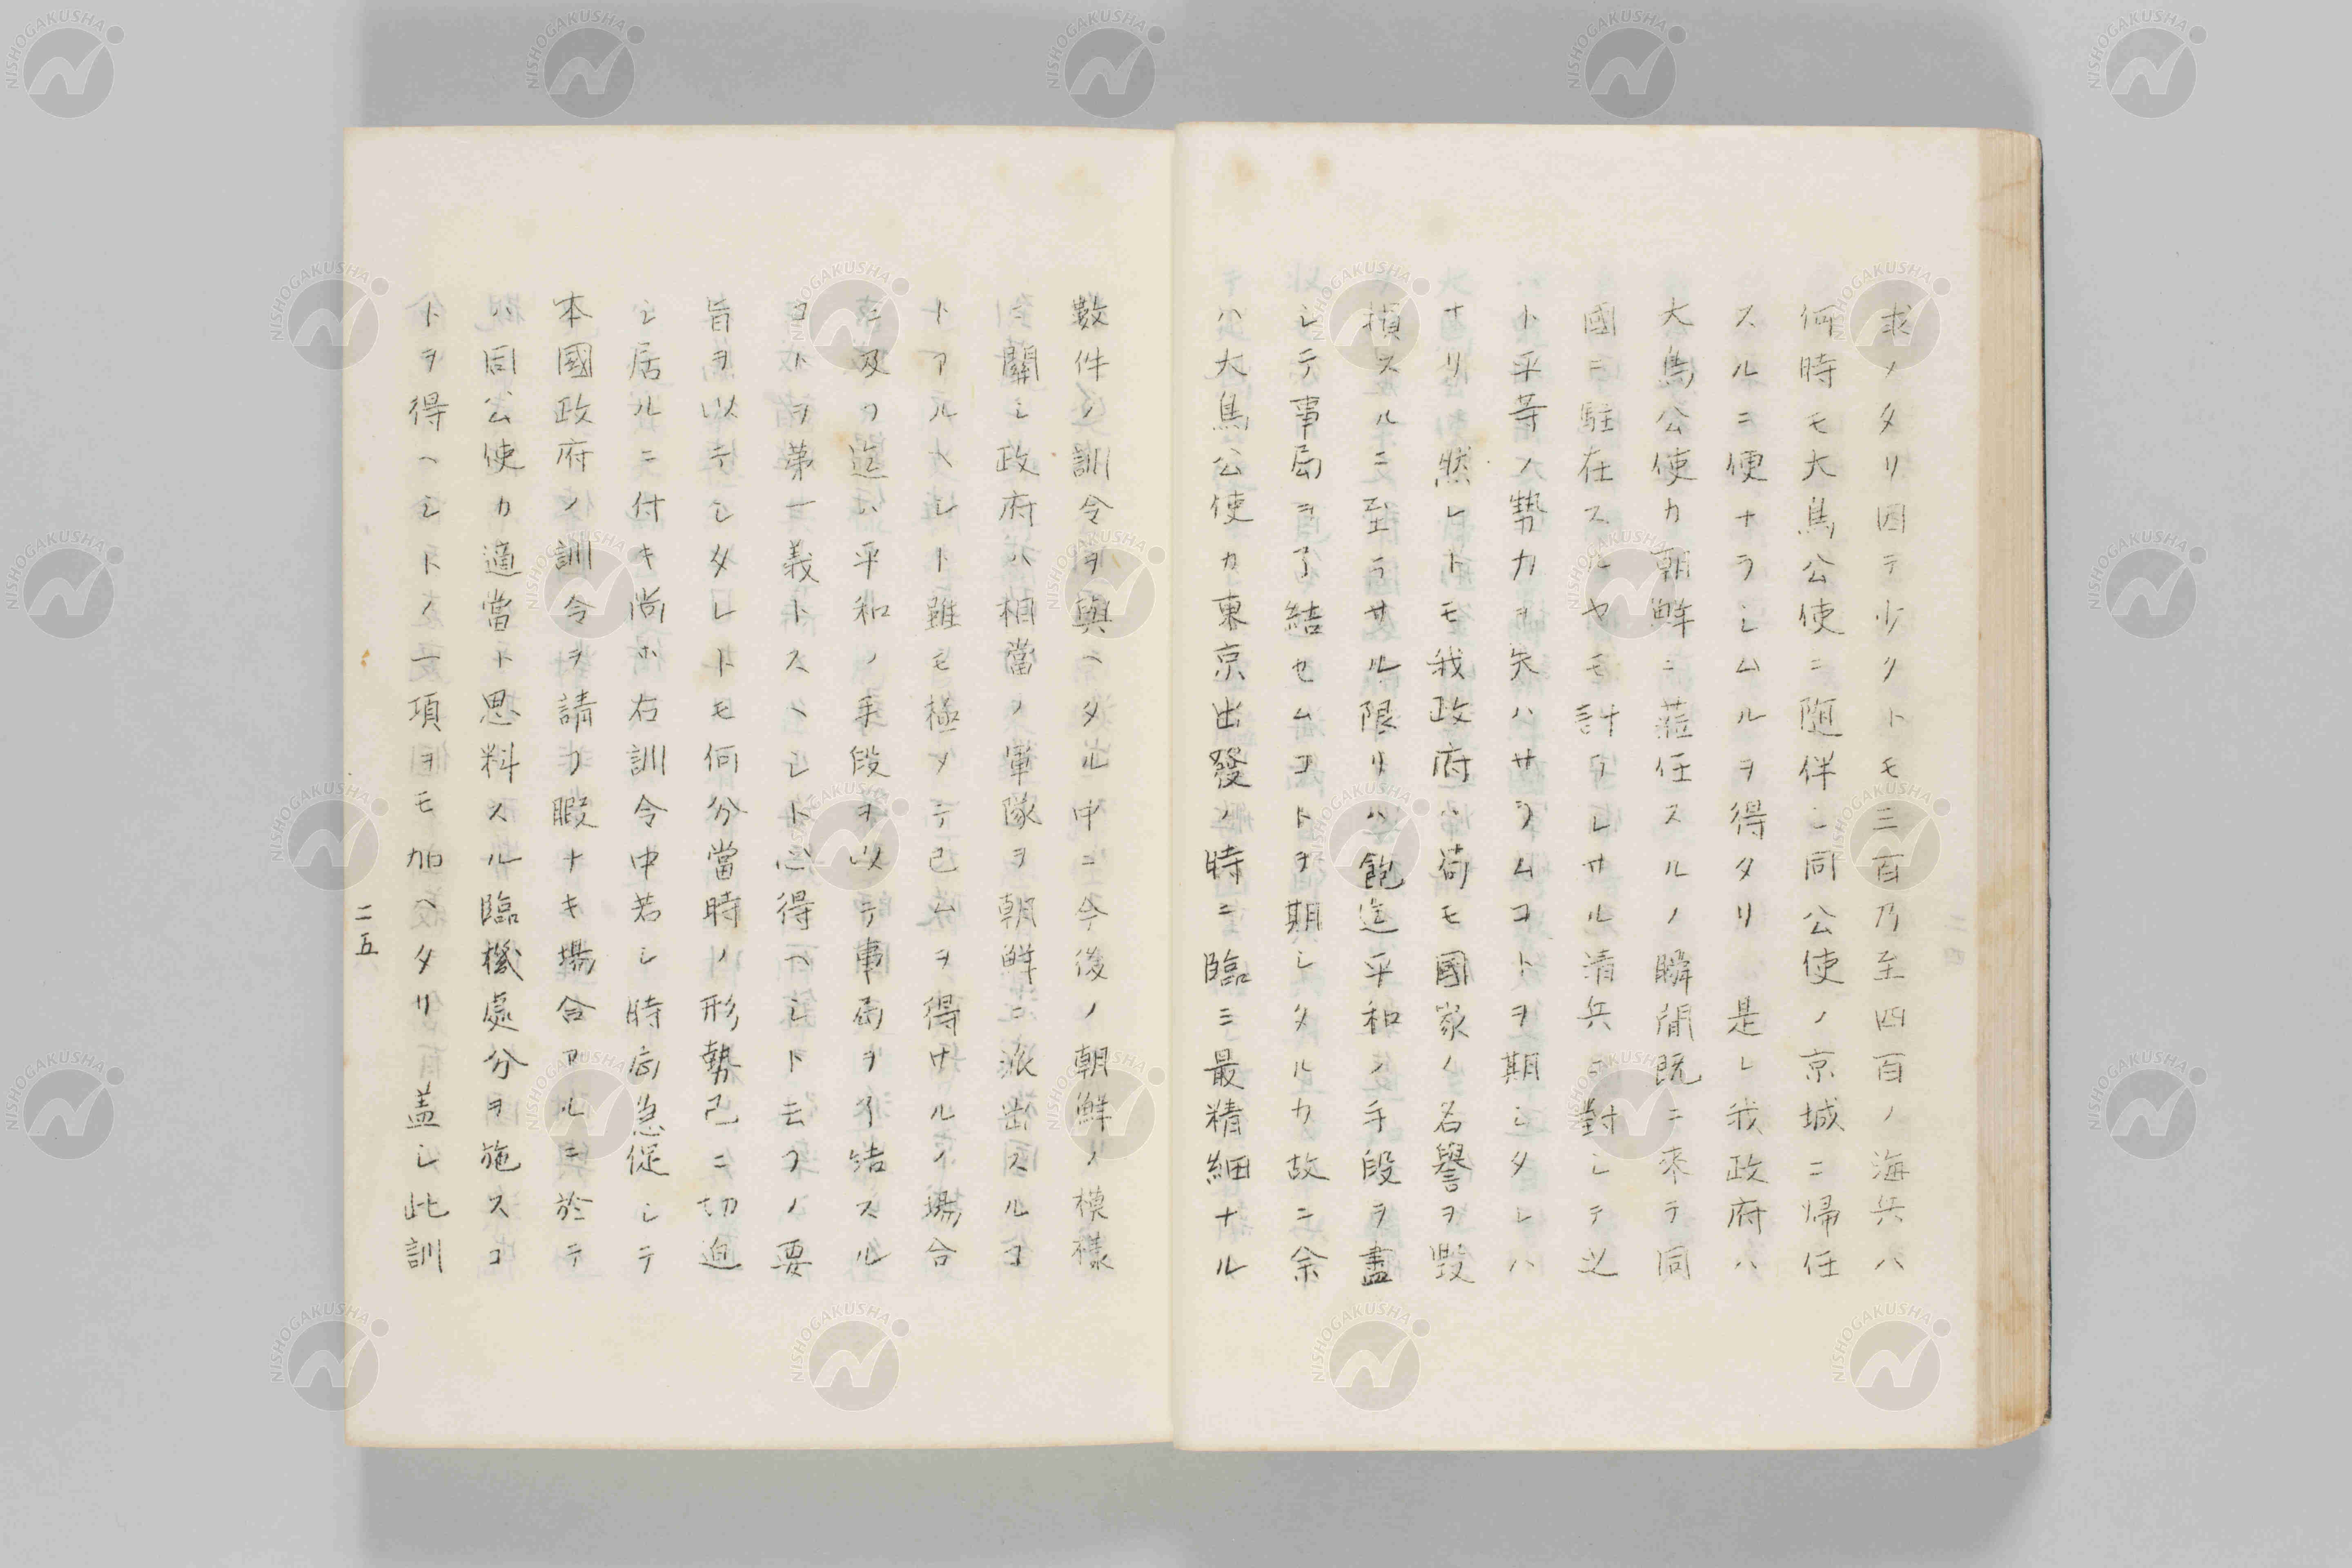 求メタリ因テ少クトモ三百乃至四百ノ海兵ハ
何時モ大鳥公使ニ随伴シ同公使ノ京城ニ帰任
スルニ便ナラシムルヲ得タリ 是レ我政府ハ
大鳥公使カ朝鮮ニ蒞任スルノ瞬間既ニ来テ同
國ニ駐在スルヤモ計ラレサル清兵ニ對シテ必
ト平等ノ勢力ヲ失ハサラムコトヲ期シタレハ
ナリ然レトモ我政府ハ苟モ國家ノ名譽ヲ毀
損スルニ至ラサル限リハ飽迄平和ノ手段ヲ盡
シテ事局ヲ了結セムコトヲ期シタルカ故ニ余
ハ大鳥公使カ東京出發ノ時ニ臨ミ最精細ナル
數件ノ訓令ヲ與ヘタル中ニ今後ノ朝鮮ノ模様
ニ關シ政府ハ相當ノ軍隊ヲ朝鮮ニ派出スルコ
トアルヘシト雖モ極メテ已ムヲ得サルノ場合
ニ及フ迄ハ平和ノ手段ヲ以テ事局ヲ了結スル
コトヲ第一義トスヘシト心得ヘシト云フノ要
旨ヲ以テシタレトモ何分當時ノ形勢已ニ切迫
シ居ルニ付キ尚ホ右訓令中若シ時局急促シテ
本國政府ノ訓令ヲ請フ暇ナキ場合アルニ於テ
ハ同公使カ適當ト思料スル臨機處分ヲ施スコ
トヲ得ヘシトノ一項ヲモ加ヘタリ 蓋シ此訓
二五
NISHOGAKUSHA